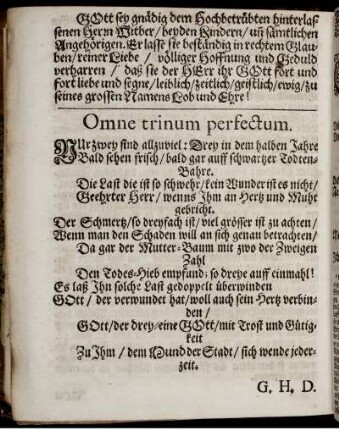 GOtt sey gnädig dem Hochbetrübten hinterlas-
senen Herrn Witber/ beyden Kindern/ uñ sämtlichen
Angehörigen. Er lasse sie beständig in rechtem Glau-
ben/ reiner Liebe / völliger Hoffnung und Geduld
verharren / daß sie der HErr ihr GOtt fort und
fort liebe und segne/ leiblich/ zeitlich/ geistlich/ ewig/ zu
seines grossen Namens Lob und Ehre!
Omne trinum perfectum.
NUr zwey sind allzuviel: Drey in dem halben Jahre
Bald sehen frisch/ bald gar auff schwartzer Todten-
Bahre.
Die Last die ist so schwehr/ kein Wunder ist es nicht/
Geehrter Herr/ wenns Ihm an Hertz und Muht
gebricht.
Der Schmertz/ so dreyfach ist/ viel grösser ist zu achten/
Wenn man den Schaden will an sich genau betrachten/
Da gar der Mutter-Baum mit zwo der Zweigen
Zahl
Den Todes-Hieb empfund; so dreye auff einmahl!
Es laß Ihn solche Last gedoppelt überwinden
GOtt/ der verwundet hat/ woll auch sein Hertz verbin-
den/
GOtt/ der drey-eine GOtt/ mit Trost und Gütig-
keit
Zu Ihm / dem Mund der Stadt/ sich wende jeder-
zeit.
G. H. D.